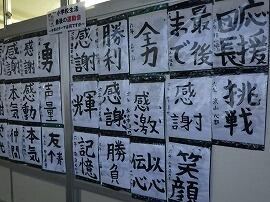 小学校生活
最後の運動会
感謝
勇
感謝
勝利
全力
最後まで
応援団長
本気
輝
感謝
感激
感謝
挑戦
仲間
本気
友情
記憶
勝負
以心伝心
笑顔